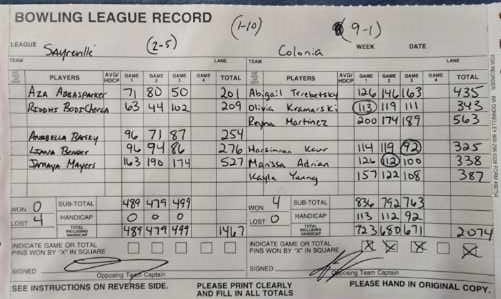 BOWLING LEAGUE RECORD
(1-10)
(9-1)
LEAGUE Sayreville (2-5) Colonia WEEK DATE
TEAM LANE TEAM LANE
PLAYERS AVG/HDCP GAME 1 GAME 2 GAME 3 GAME 4 TOTAL PLAYERS AVG/HDCP GAME 1 GAME 2 GAME 3 GAME 4 TOTAL
Aza 71 80 50 201 Abigail Terebetsky 126 146 163 435
63 44 102 209 Olivia Kramarski 113 119 111 343
Reyna Martinez 200 174 189 563
96 71 87 254
96 94 86 276 Kaur 114 119 92 325
Mayers 163 190 174 527 Marissa Adrian 126 112 100 338
Kayla Young 157 122 108 387
WON 0 SUB-TOTAL 489 479 499 WON 4 SUB-TOTAL 836 792 763
LOST 4 HANDICAP 0 0 0 LOST 0 HANDICAP 113 112 92
TOTAL INCLUDING HANDICAP 489 479 499 1467 TOTAL INCLUDING HANDICAP 723 680 671 2074
INDICATE GAME OR TOTAL PINS WON BY "X" IN SQUARE INDICATE GAME OR TOTAL PINS WON BY "X" IN SQUARE X X X X
SIGNED SIGNED
Opposing Team Captain Opposing Team Captain
SEE INSTRUCTIONS ON REVERSE SIDE. PLEASE PRINT CLEARLY AND FILL IN ALL TOTALS PLEASE HAND IN ORIGINAL COPY.